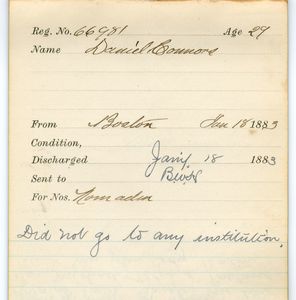 Reg. No. 66981 Age 29
Name Daniel Connors
From Boston Jan 18 1883
Condition,
Discharged Jan'y 18 1883
Sent to
For Nos. Nom adm
Did not go to any institution.